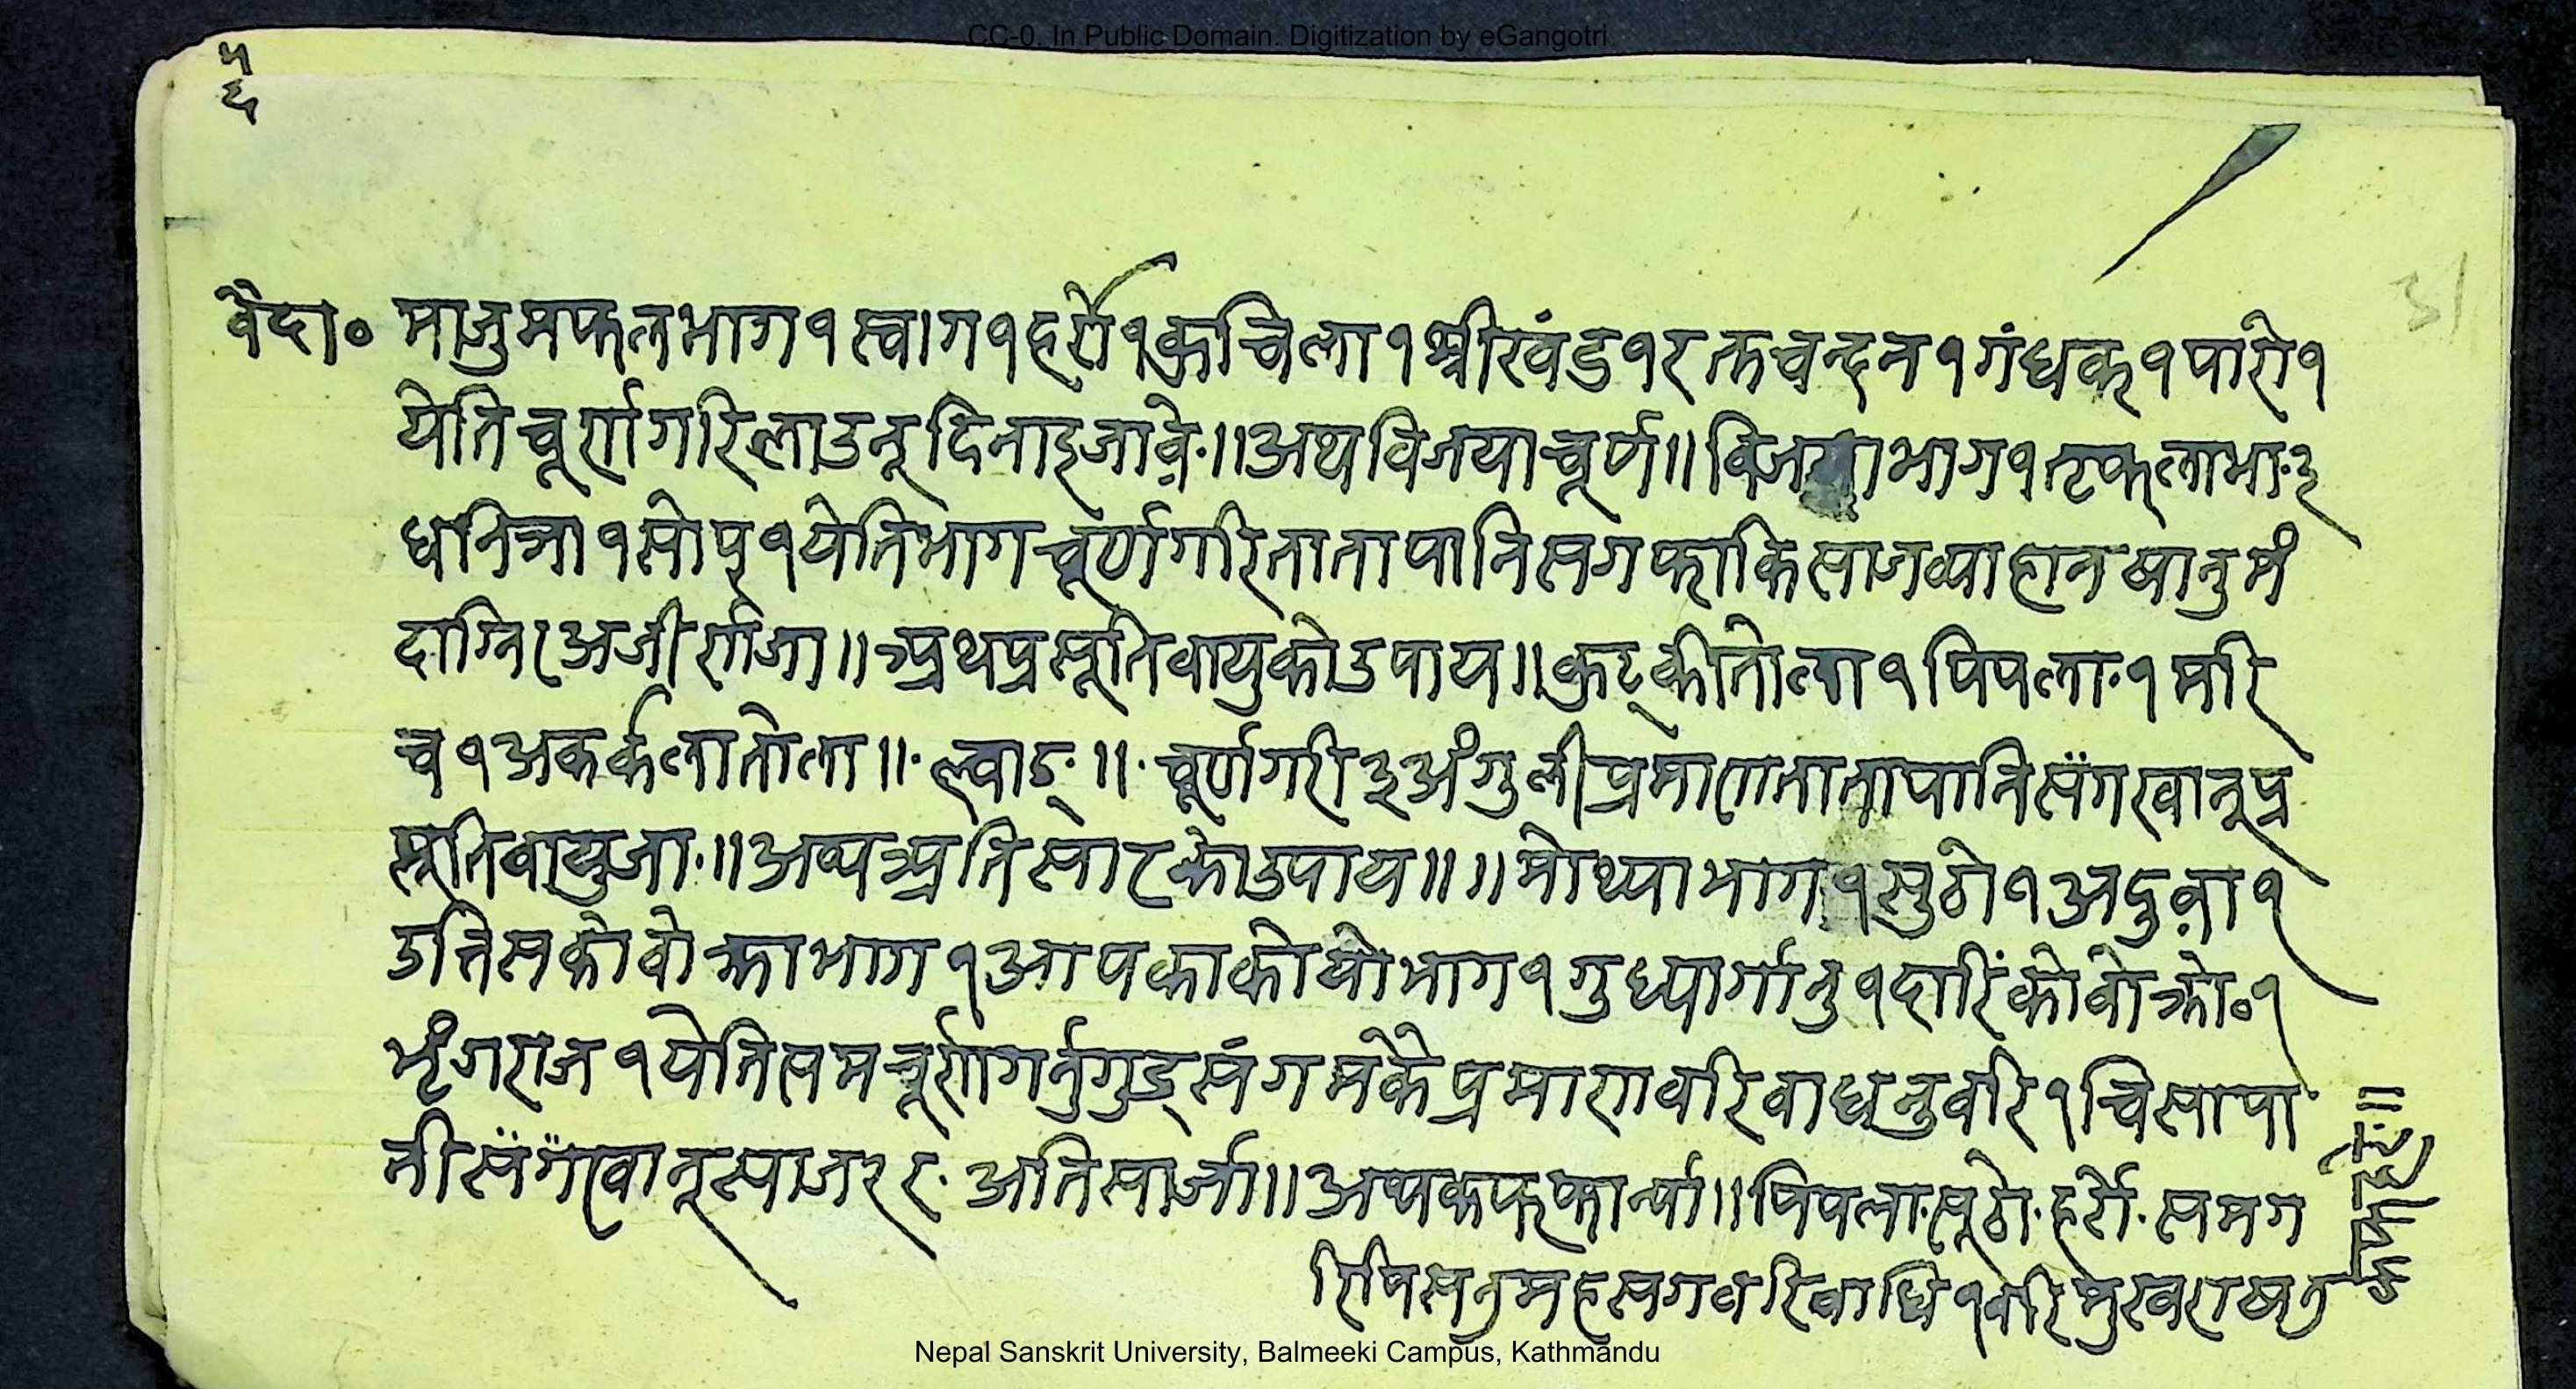 CC-0. In Public Domain. Digitization by eGangotri
५
६
31
वैदा० माजुमफलभाग१ स्वाग१ हर्रो१ कुचिला१ श्रीखंड१ रक्तचन्दन१ गंधक१ पारो१
येति चूर्ण गरि लाउनू दिनाइ जावे.॥ अथ विजया चूर्ण॥ विजया भाग१ तृफला भा.३
धनिञा१ सोप्१ येति भाग चूर्ण गरि ताता पानि सग फाकि साज व्याहान षानु मं
दाग्नि अजीर्ण जा॥ अथ प्रसूति वायुको उपाय॥ कुट्की तोला१ पिपला.१ मरि
च१ अकर्कला तोला॥. ल्वाङ्॥. चूर्ण गरी ३ अंगुली प्रमाण ताता पानि संग खानू प्र
सूति वायु जा.॥ अथ अतिसारको उपाय॥॥ मोथ्या भाग१ सुठो१ अदुवा१
उत्तिसको वोक्रा भाग१ आपका कोयो भाग१ गुध्यार्गानु१ दारिंको वोक्रो०१
भृंगराज१ येति सम चूर्ण गर्नु गुड् संग मकै प्रमाण वरि वाधनु वरि१ चिसा पा
नी संग खानू साज र र. अतिसार्जा॥ अथ कफ कान्या॥ पिपला. सूठो. हर्रो. सम ग
रि पिसनु मह सग वरि वाधि१ वरि मुख राखनु
Nepal Sanskrit University, Balmeeki Campus, Kathmandu